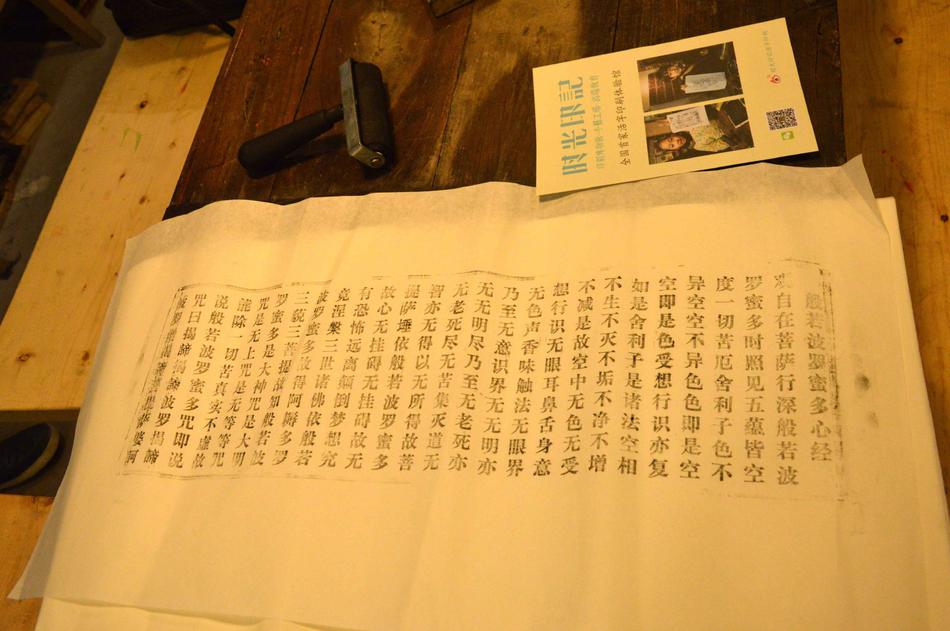 般若波罗蜜多心经
观自在菩萨行深般若波
罗蜜多时照见五蕴皆空
度一切苦厄舍利子色不
异空空不异色色即是空
空即是色受想行识亦复
如是舍利子是诸法空相
不生不灭不垢不净不增
不减是故空中无色无受
想行识无眼耳鼻舌身意
无色声香味触法无眼界
乃至无意识界无无明亦
无无明尽乃至无老死亦
无老死尽无苦集灭道无
智亦无得以无所得故菩
提萨埵依般若波罗蜜多
故心无挂碍无挂碍故无
有恐怖远离颠倒梦想究
竟涅槃三世诸佛依般若
波罗蜜多故得阿耨多罗
三藐三菩提故知般若波
罗蜜多是大神咒是大明
咒是无上咒是无等等咒
能除一切苦真实不虚故
说般若波罗蜜多咒即说
咒曰揭谛揭谛波罗揭谛
般罗僧揭谛菩提萨婆诃
时光印記
全国首家活字印刷体验馆